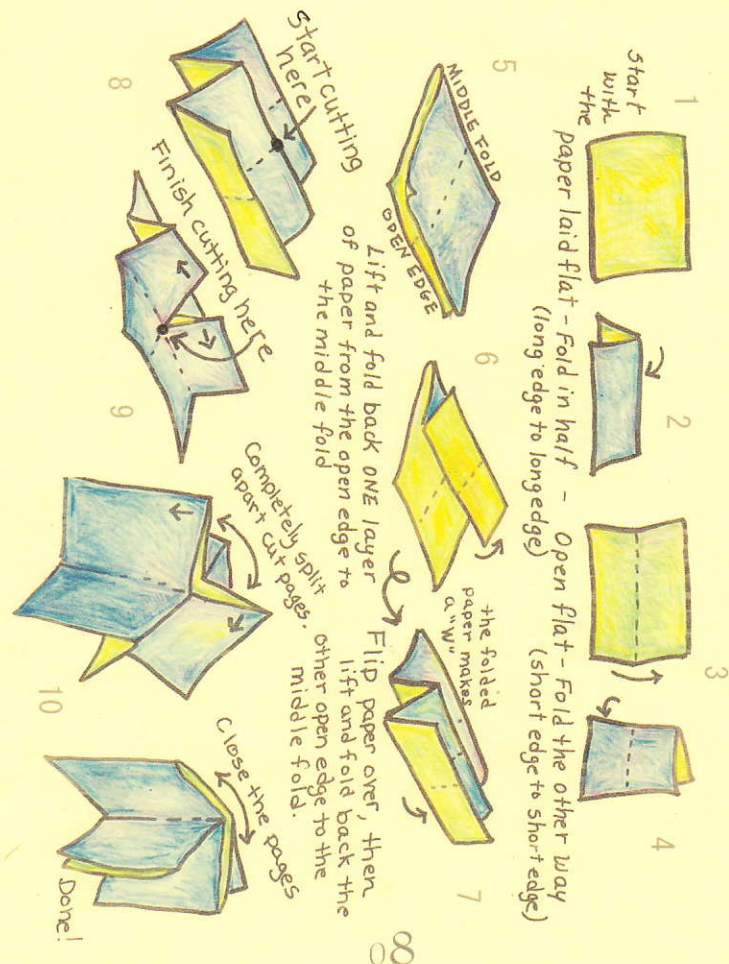 1
2
3
4
Start
with
the paper laid flat - Fold in half - Open flat - Fold the other way
(long edge to long edge)
(short edge to short edge)
5
MIDDLE FOLD
OPEN EDGE
Lift and fold back ONE layer
of paper from the open edge to
the middle fold
6
the folded
paper makes
a "W"
7
Flip paper over, then
lift and fold back the
other open edge to the
middle fold.
8
Start cutting
here!
9
Finish cutting here
10
Completely split
apart cut pages.
Close the pages
Done!
08